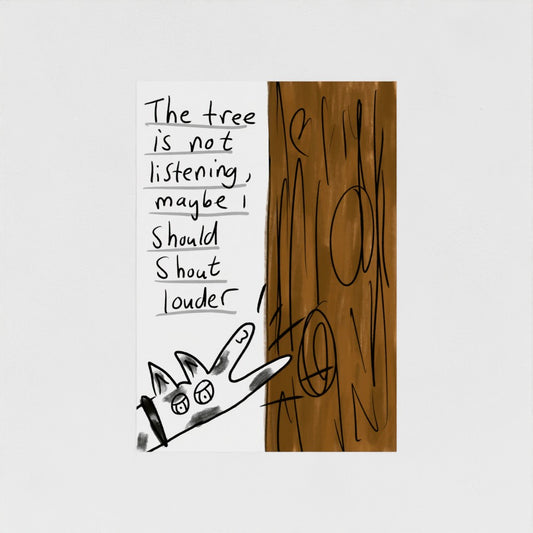 The tree
is not
listening,
maybe i
should
shout
louder